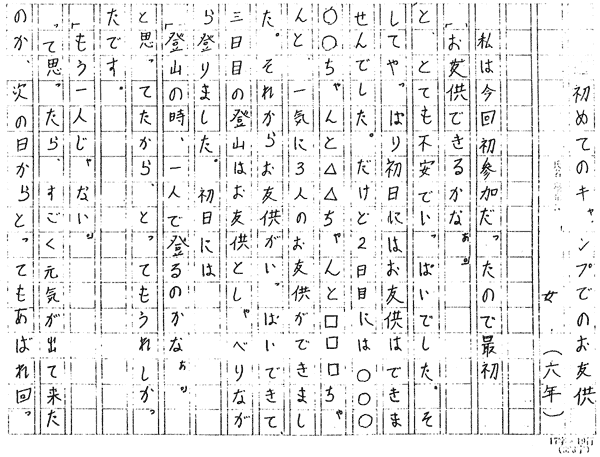 初めてのキャンプでのお友供
女　（六年）
私は今回初参加だったので最初
「お友供できるかなぁ。」
と、とても不安でいっぱいでした。そ
してやっぱり初日にはお友供はできま
せんでした。だけど２日目には○○○
○○ちゃんと△△ちゃんと□□□ちゃ
んと、一気に３人のお友供ができまし
た。それからお友供がいっぱいできて、
三日目の登山はお友供としゃべりなが
ら登りました。初日には
「登山の時、一人で登るのかなぁ。」
と思ってたから、とってもうれしかっ
たです。
「もう一人じゃない。」
って思ったら、すごく元気が出て来た
のか、次の日からとってもあばれ回っ